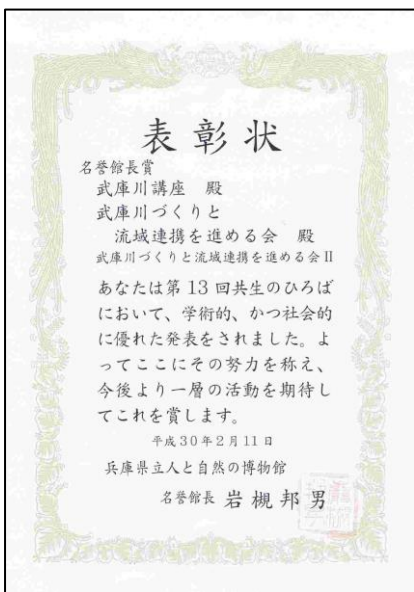 表彰状
名誉館長賞
武庫川講座 殿
武庫川づくりと
流域連携を進める会 殿
武庫川づくりと流域連携を進める会Ⅱ
あなたは第13回共生のひろば
において、学術的、かつ社会的
に優れた発表をされました。よ
ってここにその努力を称え、
今後より一層の活動を期待し
てこれを賞します。
平成30年2月11日
兵庫県立人と自然の博物館
名誉館長 岩槻邦男